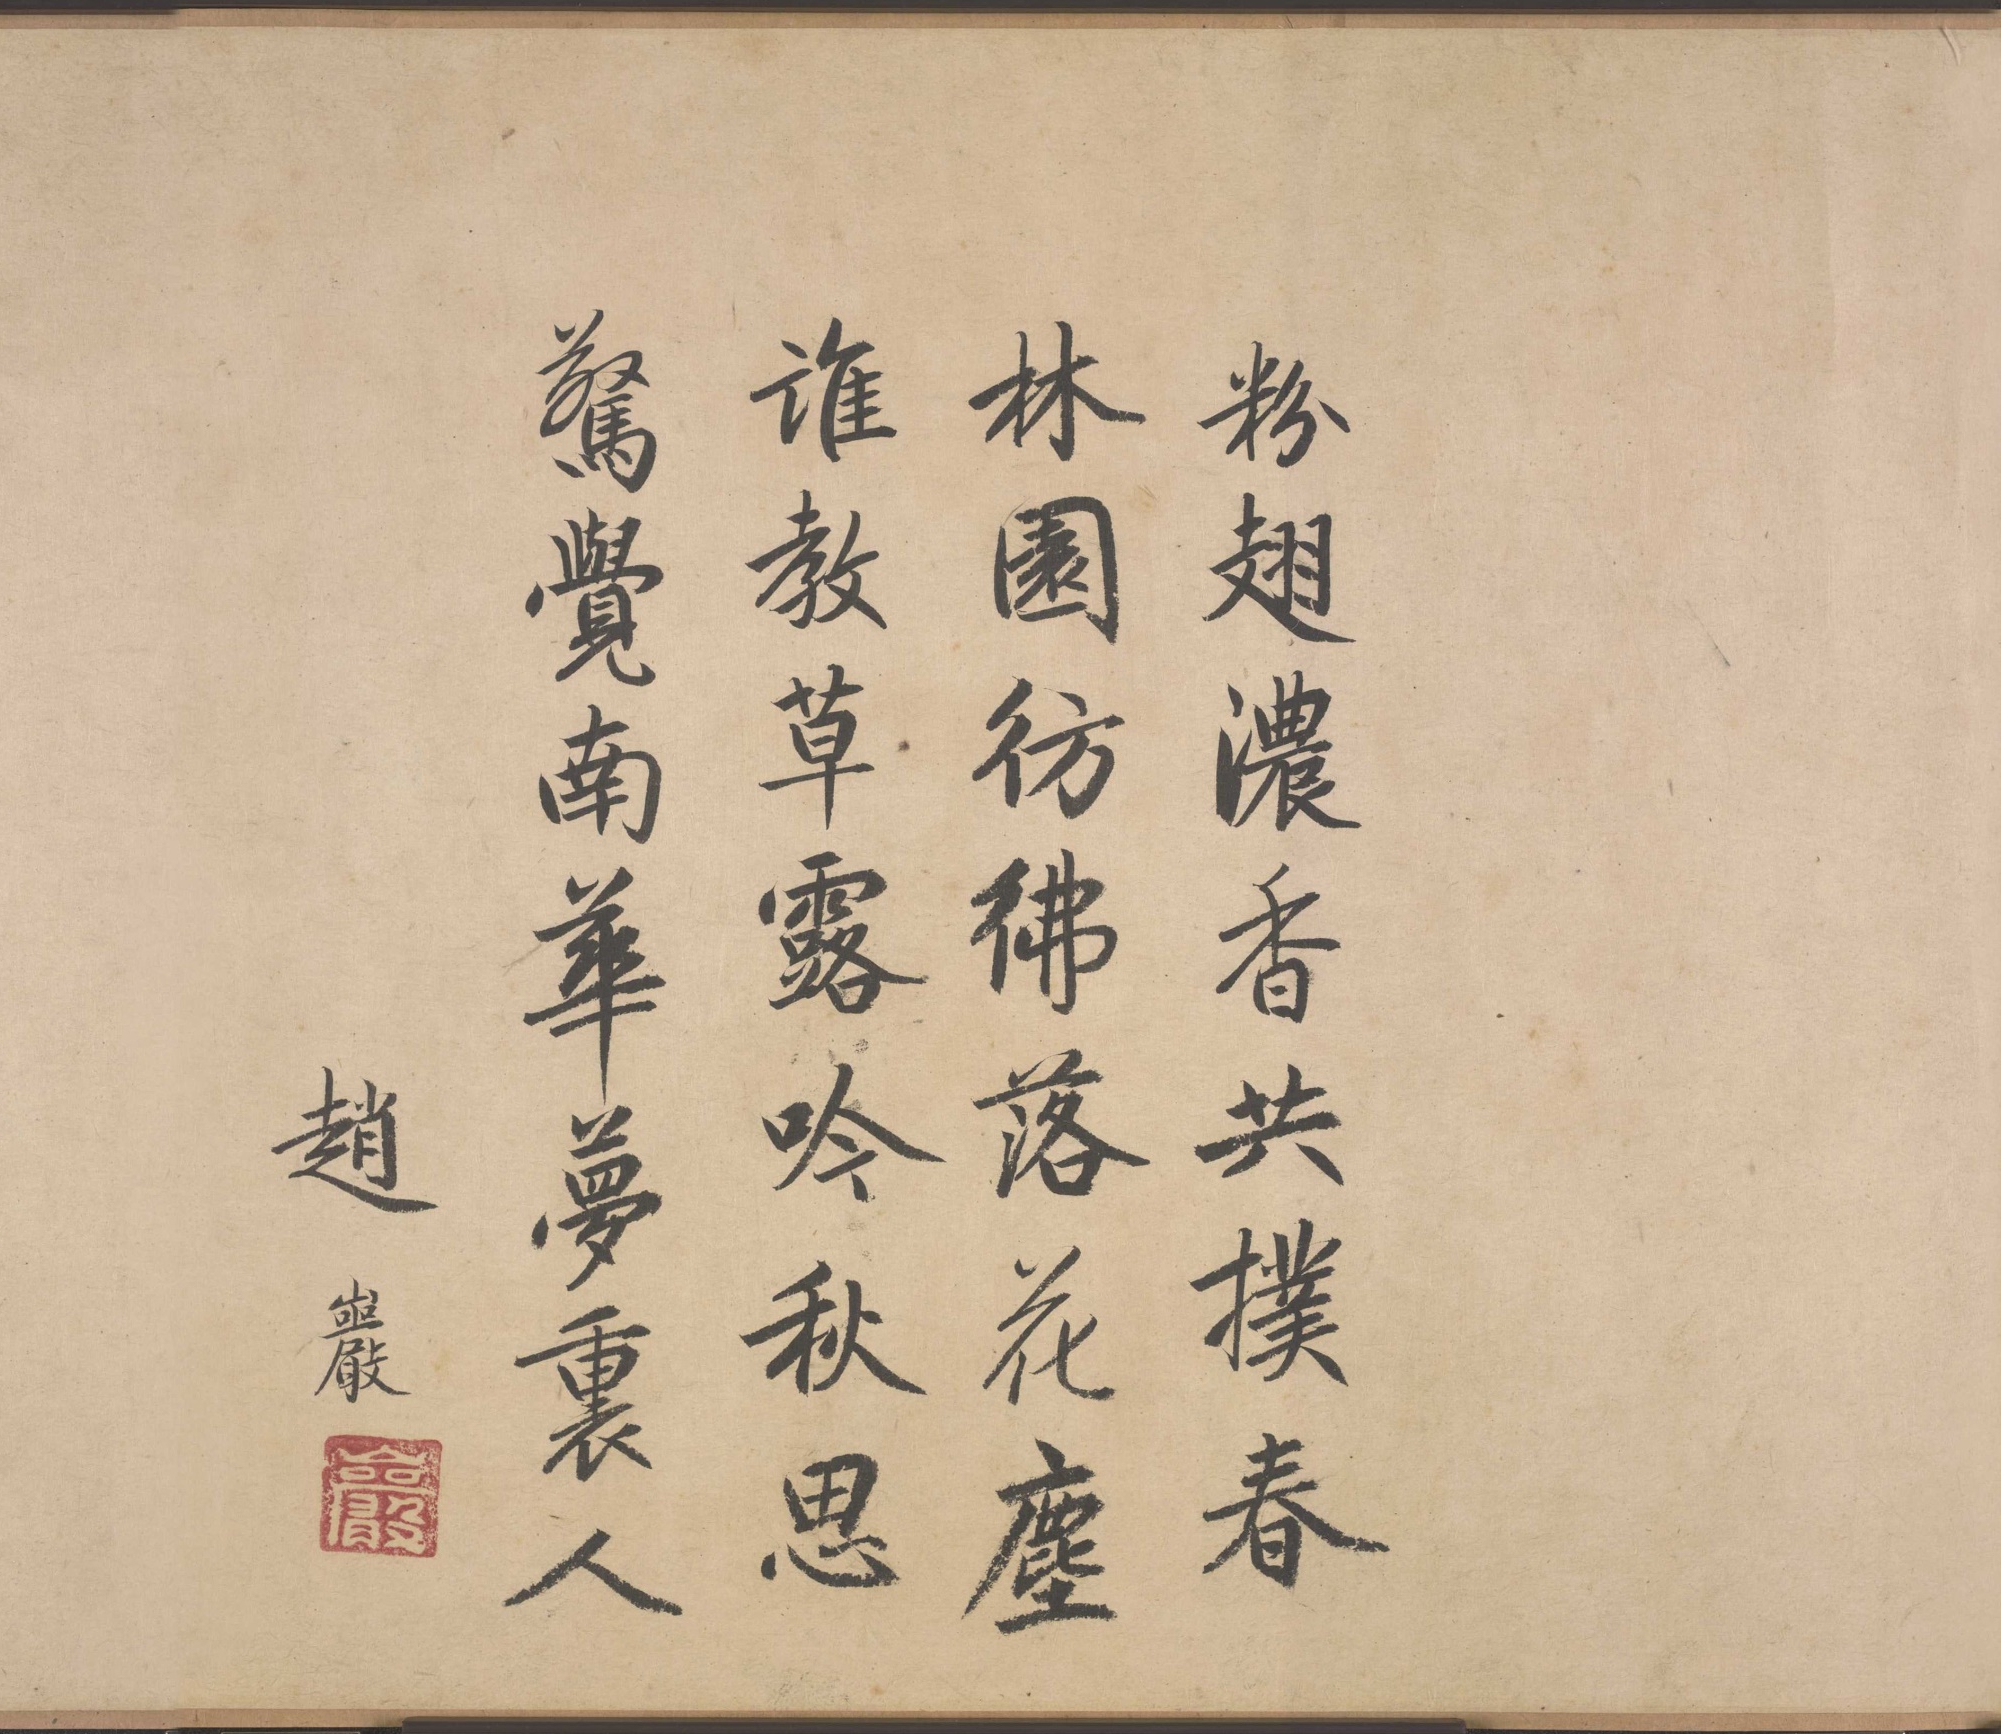 粉翅濃香共撲春
林園彷彿落花塵
誰教草露吟秋思
驚覺南華夢裏人
趙巖